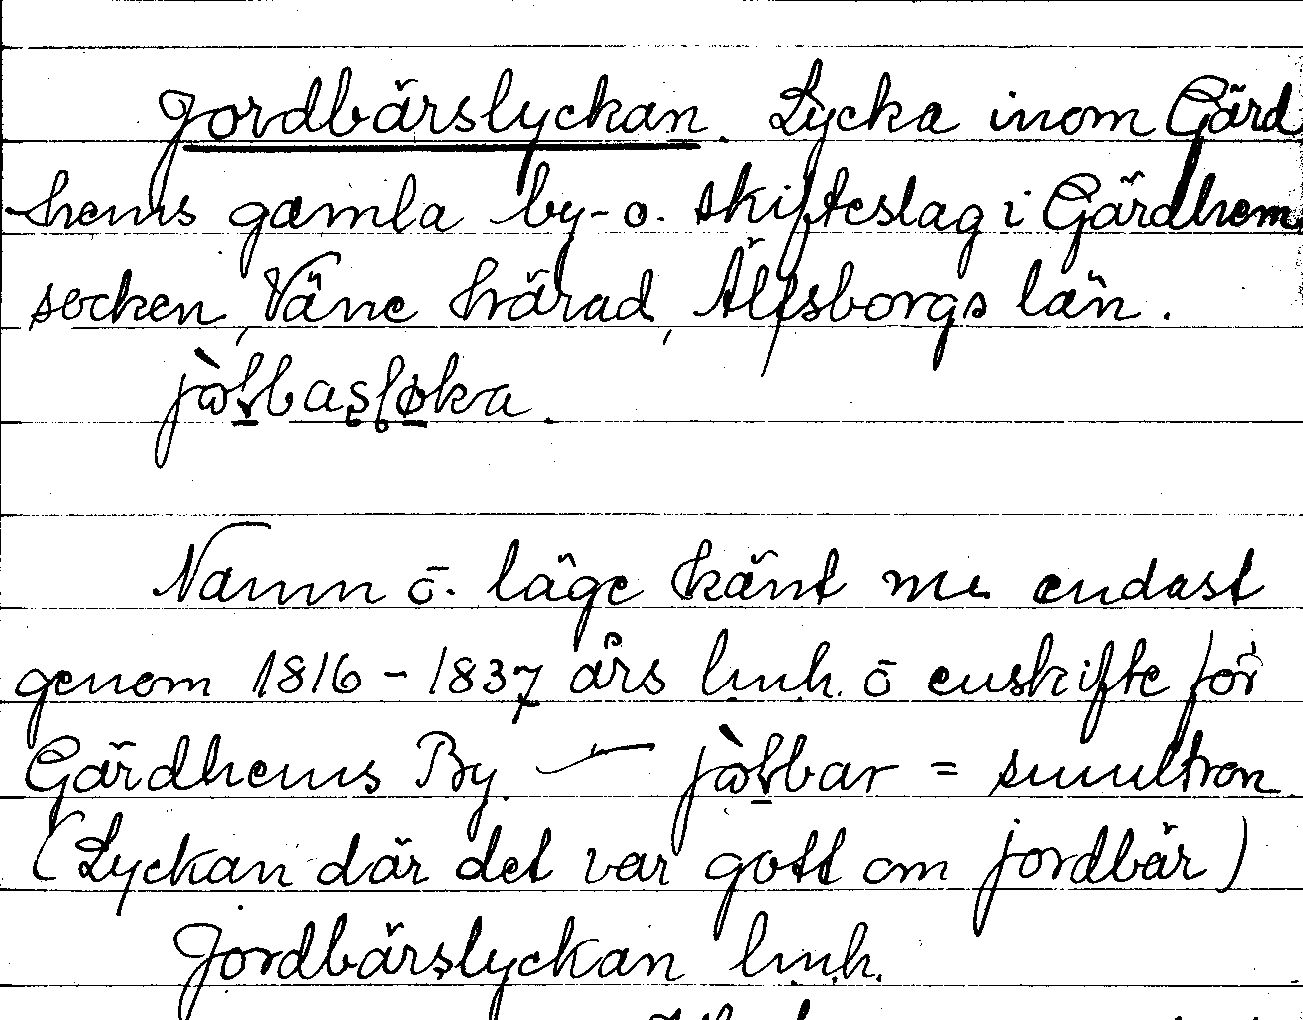 Jordbärslyckan. Lycka inom Gärd
-hems gamla by- o. skifteslag i Gärdhem
socken, Väne härad, Älfsborgs län.
Namn o. läge känt nu endast
genom 1816 - 1837 års lmh. o enskifte för
Gärdhems By. — = smultron
(Lyckan där det var gott om jordbär)
Jordbärslyckan lmh.